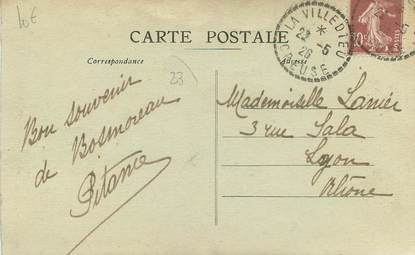 10€
LA VILLEDIEU
22 * -5
26
CREUSE
CARTE POSTALE
Correspondance
Adresse
23
Bon souvenir
de Bosmoreau
Pitance
Mademoiselle Lanier
3 rue Sala
Lyon
Rhône